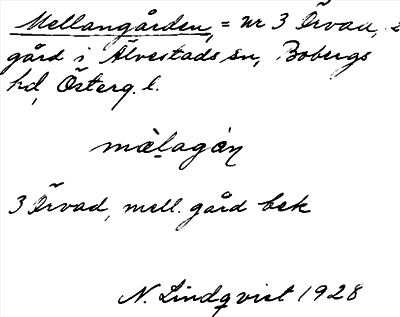 Mellangården, = nr 3 Örvad,
gård i Alvestads sn, Bobergs
hd, Österg. l.
mæ̀lagàṇ
3 Örvad, mell. gård bek
N. Lindqvist 1928